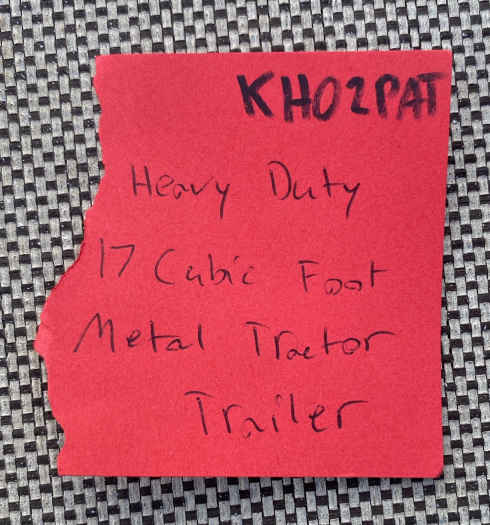 KH02PAT
Heavy Duty
17 Cubic Foot
Metal Tractor
Trailer